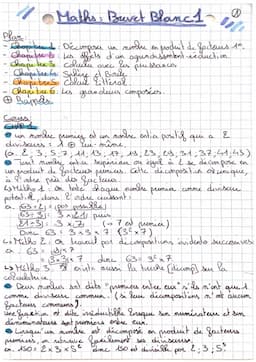 Maths : Brevet Blanc 1
①
Plan
- Chapitre 1 : Décomposer un nombre en produit de facteurs 1er.
- Chapitre 2 : Les effets d'un agrandissement-réduction
- Chapitre 3 : Calculer avec les puissances
- Chapitre 4 : Sphère et Boule
- Chapitre 5 : Calcul littéral
- Chapitre 6 : Les grandeurs composées.
⊕ Rappels
Cours :
un nombre premier est un nombre entier positif qui a 2
diviseurs : 1 et lui-même.
ex : 2, 3, 5, 7, 11, 13, 17, 19, 23, 29, 31, 37, 41, 43
Tout nombre entier supérieur ou égal à 2 se décompose en
un produit de facteurs premiers. Cette décomposition est unique,
à l'ordre près des facteurs.
Métho 1 : On teste chaque nombre premier comme diviseur
potentiel, dans l'ordre croissant :
ex : 63 ÷ 2 = (pas possible)
63 ÷ 3 = 3 × 21
21 ÷ 3 = 3 × 7 (→ 7 est premier)
Donc 63 = 3 × 3 × 7 (3² × 7)
Métho 2 : On travail par décompositions successives
ex : 63 = 
= 3 × 3 × 7 donc 63 = 3² × 7
Métho 3 : Il existe aussi la touche (décomp) sur la
calculatrice.
Deux nombres sont dits "premiers entre eux" s'ils n'ont que 1
comme diviseur commun. (si leur décomposition n'ont aucun
facteurs communs).
une fraction est dite irréductible lorsque son numérateur et son
dénominateur sont premiers entre eux.
Lorsqu'un nombre est décomposé en produit de facteurs
premiers, on retrouve facilement ses diviseurs.
ex : 150 = 2 × 3 × 5² donc 150 est divisible par 2 ; 3 ; 5